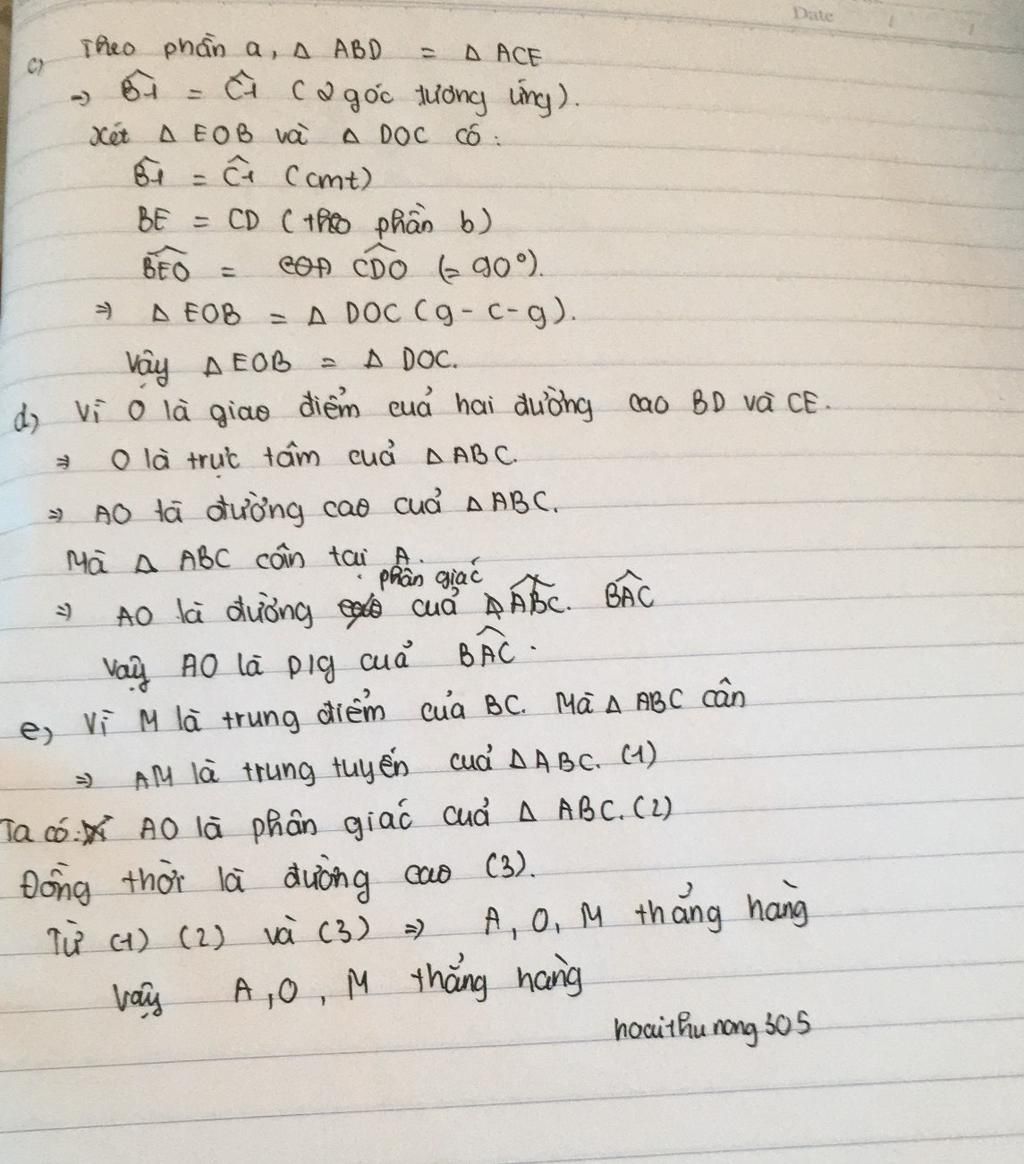 Date / /
c) Theo phần a, Δ ABD = Δ ACE
→ B̂1 = Ĉ1 (2 góc tương ứng).
Xét Δ EOB và Δ DOC có:
B̂1 = Ĉ1 (cmt)
BE = CD (theo phần b)
BEO = CDO (= 90°).
⇒ Δ EOB = Δ DOC (g - c - g).
Vậy Δ EOB = Δ DOC.
d) Vì O là giao điểm cuả hai đường cao BD và CE.
⇒ O là trực tâm cuả Δ ABC.
⇒ AO là đường cao cuả Δ ABC.
Mà Δ ABC cân tại A.
phân giác
⇒ AO là đường cuả BAC
Vậy AO là p/g cuả BAC.
e) Vì M là trung điểm của BC. Mà Δ ABC cân
⇒ AM là trung tuyến cuả Δ ABC. (1)
Ta có: AO là phân giác cuả Δ ABC. (2)
Đồng thời là đường cao (3).
Từ (1) (2) và (3) ⇒ A, O, M thẳng hàng
Vậy A, O, M thẳng hàng
hoaithunong305